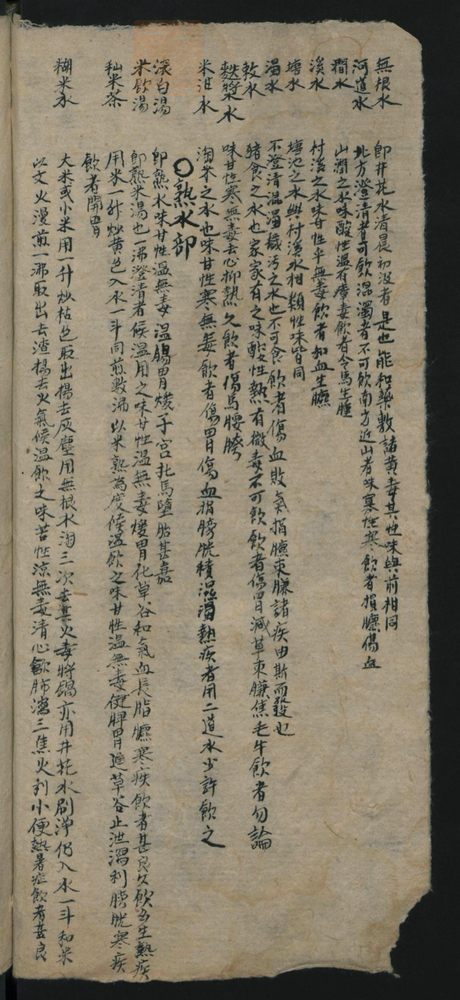 無根水　即井花水清晨初汲者是也能和藥敷諸黄毒其性味與前相同
河道水　北方澄清者可飲混濁者不可飲南方近山者味寡性寒飲者損臕傷血
澗水　山澗之水味酸性温有虐毒飲者令馬生瘇
溪水　村溪之水味甘性平無毒飲者和血生臕
塘水　塘池之水與村溪水相類性味皆同
溷水　不澄清混濁穢污之水也不可食飲者傷血敗氣損臕束膁諸疾由斯而發也
㪍水　豬食之水也家家有之味酸性熱有微毒不可飲飲者傷胃減草束膁焦毛牛飲者勿論
麩漿水　味甘性寒無毒去心抑熱久飲者傷馬腰膀
米泔水　淘米之水也味甘性寒無毒飲者傷胃傷血損膀胱積濕濁熱疾者用二道水少許飲之
〇熟水部
滚白湯　即熱水味甘性温無毒温腸胃煖子宫扥馬墮胎甚嘉
米飲湯　即熟米湯也一沸澄清者候温用之味甘性温無毒煖胃化草谷和氣血長脂臕寒疾飲者甚良久飲多生熱疾
秈米茶　用米一升炒黄色入水一斗同煎數沸以米熟為度候温飲之味甘性温無毒健脾胃進草谷止泄瀉利膀胱寒疾
飲者開胃
糊米水　大米或小米用一升炒枯色取出揚去灰塵用無根水淘三次去其火毒將鍋亦用井花水刷淨仍入水一斗和米
以文火漫煎一沸取出去渣揚去火氣候温飲之味苦性凉無毒清心歛肺瀉三焦火利小便熱暑症飲者甚良